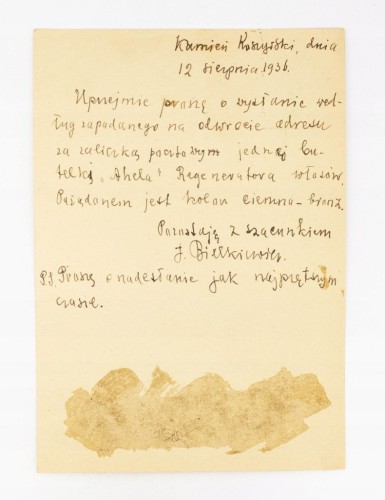 Kamień Koszyrski, dnia
12 sierpnia 1936.
Uprzejmie proszę o wysłanie wed-
ług zapodanego na odwrocie adresu
za zaliczką pocztowym jednej bu-
telki „Ahela" Regeneratora włosów.
Pożądanem jest kolor ciemno-bronz.
Pozostaję z szacunkiem
J. Bielkiewicz.
P.S. Proszę o nadesłanie jak najprętszym
czasie.